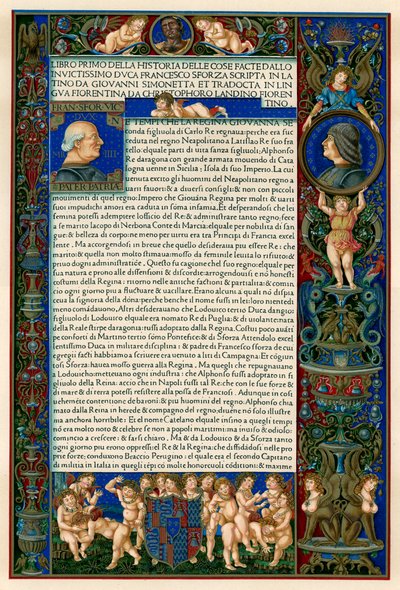 LIBRO PRIMO DELLA HISTORIA DELLE COSE FACTE DALLO
INVICTISSIMO DVCA FRANCESCO SFORZA SCRIPTA IN LA
TINO DA GIOVANNI SIMONETTA ET TRADOCTA IN LIN
GVA FIORENTINA DA CHRISTOPHORO LANDINO FIOREN
TINO.
FRAN·SFOR·VIC
DVX
MLI
IIII
PATER PATRIÆ
E TEMPI CHE LA REGINA GIOVANNA SE
conda figliuola di Carlo Re regnaua: perche era suc
ceduta nel regno Neapolitano a Latislao Re suo fra
tello: elquale parti di uita sanza figliuoli: Alphonso
Re daragona con grande armata mouendo di Cata
logna uenne in Sicilia: Isola di suo Imperio. La cui
uenuta excito gli huomini del Neapolitano regno a
uarii fauori: & a diuersi consigli: & non con piccoli
mouimenti di quel regno: Impero che Giouãna Regina per molti & uarii
suoi impudichi amori era caduta in sõma infamia. Et desperandosi che lei
femina potessi adempiere lofficio del Re: & administrare tanto regno: fece
a se marito Iacopo di Nerbona Conte di Marcia: elquale per nobilita di san
gue: & belleza di corpo: ne meno per uirtu era tra Principi di Francia excel
lente. Ma accorgendosi in breue che quello desideraua piu essere Re: che
marito: & quella non molto stimaua: mosso da feminile leuita lo rifiuto: &
priuo dogni administratiõe. Questo fu cagione chel suo regno: elquale per
sua natura e prono alle dissensioni & discordie: arrogendouisi e nõ honesti
costumi della Regina: ritorno nelle antiche factioni & partialita: & comin
cio ogni giorno piu a fluctuare & uacillare. Erano alcuni a quali nõ dispia
ceua la signoria della dõna: perche benche il nome fussi in lei: loro nientedi
meno comãdauono. Altri desiderauano che Lodouico tertio Duca dangio:
figliuolo di Lodouico elquale era nomato Re di Puglia: & di uiolante: nata
della Reale stirpe daragona: fussi adoptato dalla Regina. Costui poco auãti
pe conforti di Martino tertio sõmo Pontefice: & di Sforza Attendolo excel
lentissimo Duca in militare disciplina: & padre di Francesco sforza de cui
egregii facti habbiamo a scriuere era uenuto a liti di Campagna: Et cõgiuto
si Sforza: haueua mosso guerra alla Regina. Ma quegli che repugnauano
a Lodouicho: metteuano ogni industria: che Alphonso fussi adoptato in fi
gliuolo della Reina: accio che in Napoli fussi tal Re: che con le sue forze &
di mare & di terra potessi resistere alla possa de Franciosi. Adunque in cosi
uehemente contentione de baroni: & piu huomini del regno: Alphonso chia
mato dalla Reina in herede & compagno del regno: diuene nõ solo illustre
ma anchora horribile: Et el nome Catelano elquale infino a quegli tempi
nõ era molto noto & celebre se non a popoli maritimi: ma inuiso & odioso:
comincio a crescere: & farsi chiaro. Ma & da Lodouico & da Sforza tanto
ogni giorno piu erono oppressi el Re & la Regina: che diffidãdosi nelle pro
prie forze: conduxono Braccio Perugino: el quale era el secondo Capitano
di militia in Italia in quegli tẽpi: cõ molte honoreuoli cõditioni: & maxime